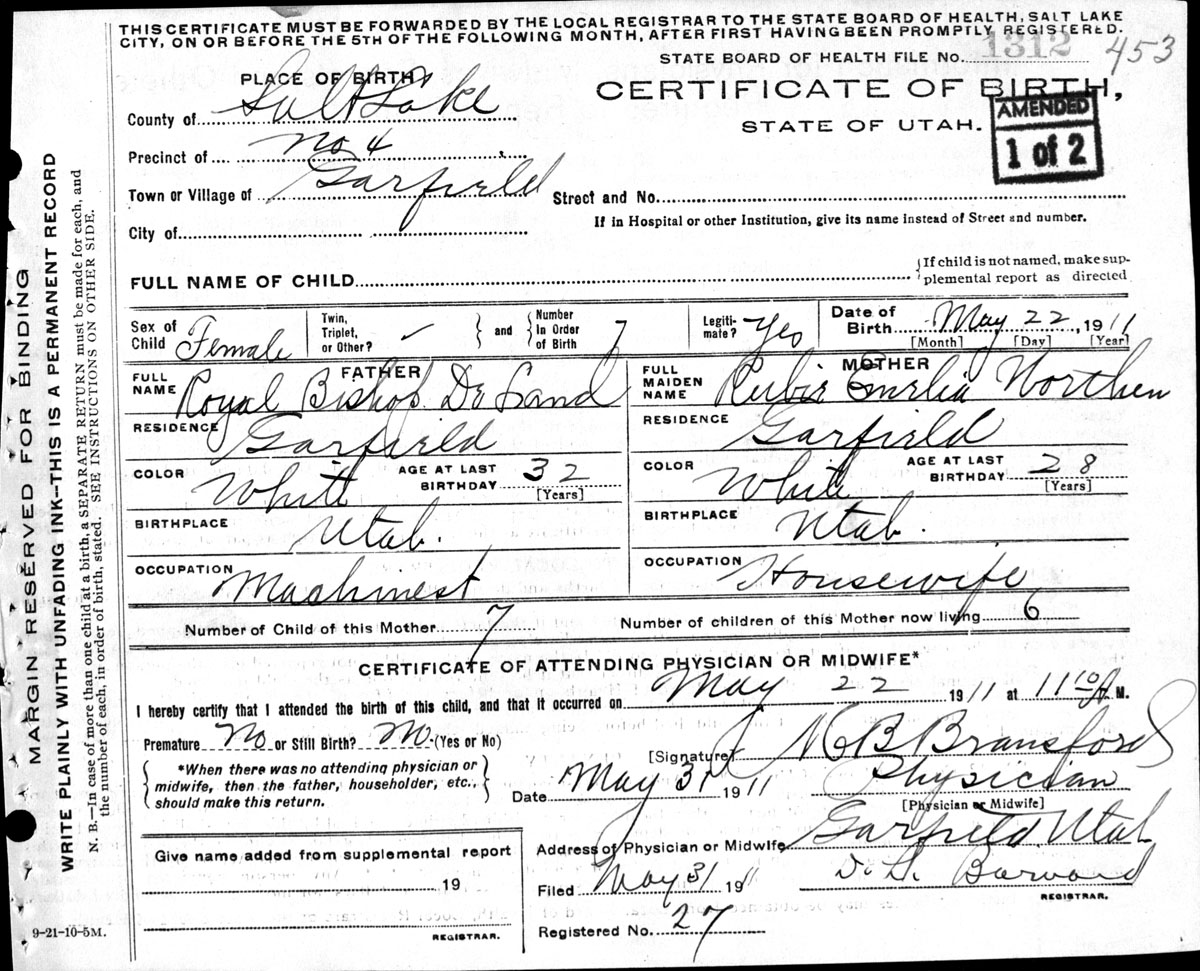 THIS CERTIFICATE MUST BE FORWARDED BY THE LOCAL REGISTRAR TO THE STATE BOARD OF HEALTH, SALT LAKE
CITY, ON OR BEFORE THE 5TH OF THE FOLLOWING MONTH, AFTER FIRST HAVING BEEN PROMPTLY REGISTERED.
STATE BOARD OF HEALTH FILE No. 1312 453
PLACE OF BIRTH
CERTIFICATE OF BIRTH,
County of Salt Lake
STATE OF UTAH.
AMENDED
1 of 2
Precinct of No 4
Town or Village of Garfield
Street and No.
City of
If in Hospital or other Institution, give its name instead of Street and number.
FULL NAME OF CHILD
{If child is not named, make sup-
plemental report as directed
Sex of Child Female
Twin, Triplet, or Other? ✓ } and { Number In Order of Birth 7
Legiti-mate? Yes
Date of Birth May 22, 1911
[Month] [Day] [Year]
FATHER
MOTHER
FULL NAME Royal Bishop De Land
FULL MAIDEN NAME Rubie Emelia Worthen
RESIDENCE Garfield
RESIDENCE Garfield
COLOR White AGE AT LAST BIRTHDAY 32 [Years]
COLOR White AGE AT LAST BIRTHDAY 28 [Years]
BIRTHPLACE Utah.
BIRTHPLACE Utah.
OCCUPATION Machinest
OCCUPATION Housewife
Number of Child of this Mother 7
Number of children of this Mother now living 6
CERTIFICATE OF ATTENDING PHYSICIAN OR MIDWIFE*
I hereby certify that I attended the birth of this child, and that it occurred on May 22 1911 at 11 10 A.M.
Premature No or Still Birth? No (Yes or No)
[Signature] Bransford
*When there was no attending physician or
midwife, then the father, householder, etc.,
should make this return.
Date May 31 1911
Physician
[Physician or Midwife]
Address of Physician or Midwife Garfield Utah
Give name added from supplemental report
19
REGISTRAR.
Filed May 31 1911
REGISTRAR.
Registered No. 27
9-21-10-5M.
MARGIN RESERVED FOR BINDING
WRITE PLAINLY WITH UNFADING INK—THIS IS A PERMANENT RECORD
N. B.—In case of more than one child at a birth, a SEPARATE RETURN must be made for each, and
the number of each, in order of birth, stated. SEE INSTRUCTIONS ON OTHER SIDE.